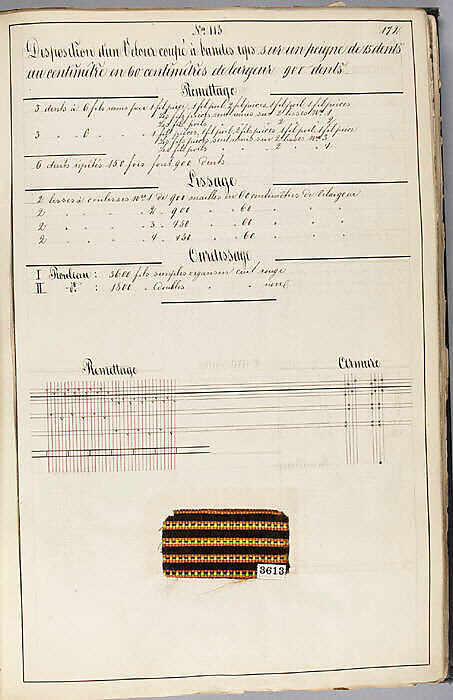 No. 113
172
Disposition d'un Velour coupé à bandes reps sur un peigne de 15 dents
au centimètre en 60 centimètres de largeur 900 dents
Remettage
3 dents à 6 fils sans face 1 fil pièce, 1 fil poil, 2 fils pièces, 1 fil poil, 1 fil pièces
les fils pièces sont remis sur 2 lisses No. 1
les fils poils 2
3 6 1 fil pièces, 1 fil poil, 2 fils pièces, 1 fil poil, 1 fil pièce
les fils pièces sont remis sur 2 lisses
les fils poils 2 4
6 dents répétés 150 fois font 900 Dents
Lissage
2 lisses à coulisses No. 1 de 900 mailles en 60 centimètres de largeur
2 " 2 " 900 " 60
2 " 3 " 450 " 60
2 " 4 " 450 " 60
Ourdissage
I Rouleau : 3600 fils simples organsin cuit rouge
II do : 1800 " doubles " noir
Remettage Armure
3613